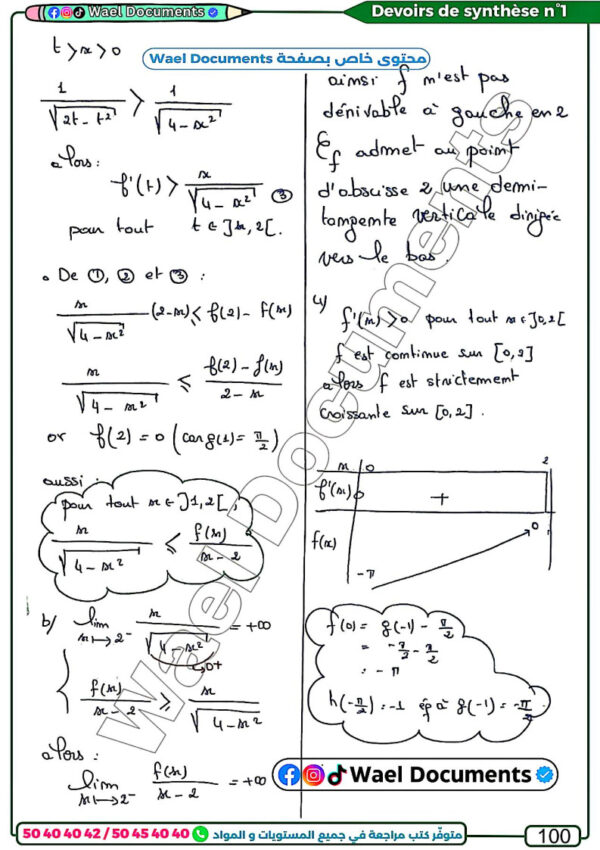 Wael Documents
Devoirs de synthèse n°1
محتوى خاص بصفحة Wael Documents
t > x > 0
1/√(2t - t²) > 1/√(4 - x²)
alors :
f'(t) > x/√(4 - x²) ③
pour tout t ∈ ]x, 2[.
• De ①, ② et ③ :
x/√(4 - x²) (2-x) ≤ f(2) - f(x)
x/√(4 - x²) ≤ (f(2) - f(x))/(2 - x)
or f(2) = 0 (car g(1) = π/2)
aussi :
pour tout x ∈ ]1, 2[,
x/√(4 - x²) ≤ f(x)/(x - 2)
b/ lim x→2⁻ x/√(4 - x²) = +∞
→0⁺
{ f(x)/(x - 2) ≥ x/√(4 - x²)
alors :
lim x→2⁻ f(x)/(x - 2) = +∞
ainsi f n'est pas
dérivable à gauche en 2
ℰf admet au point
d'abscisse 2 une demi-
tangente verticale dirigée
vers le bas.
f'(x) > 0 pour tout x ∈ ]0, 2[
f est continue sur [0, 2]
alors f est strictement
croissante sur [0, 2].
x 0 2
f'(x) 0 +
f(x) -π 0
f(0) = g(-1) - π/2
= -π/2 - π/2
= - π
h(-π/2) = -1 éq à g(-1) = -π/2
Wael Documents
Wael Documents
50 40 40 42 / 50 45 40 40 متوفّر كتب مراجعة في جميع المستويات و المواد
100